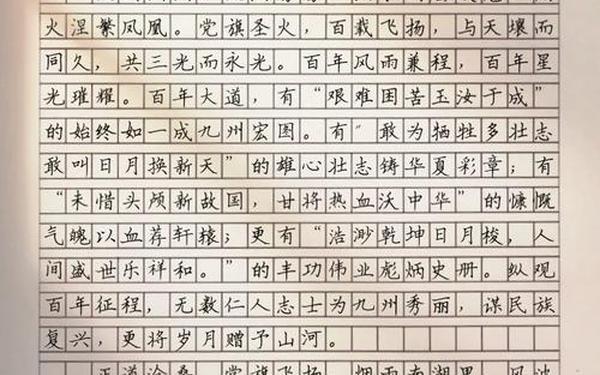 火涅繁凤凰。党旗圣火，百载飞扬，与天壤而
同久，共三光而永光。百年风雨兼程，百年星
光璀耀。百年大道，有“艰难困苦玉汝于成”
的始终如一成九州宏图。有“敢为牺牲多壮志
敢叫日月换新天”的雄心壮志铸华夏彩章；有
“未惜头颅新故国，甘将热血沃中华”的慷慨
气魄以血荐轩辕；更有“浩渺乾坤日月梭，人
间盛世乐祥和。”的丰功伟业彪炳史册。纵观
百年征程，无数仁人志士为九州秀丽，谋民族
复兴，更将岁月赠予山河。
正道沧桑，党旗飞扬。烟雨南湖里，风波